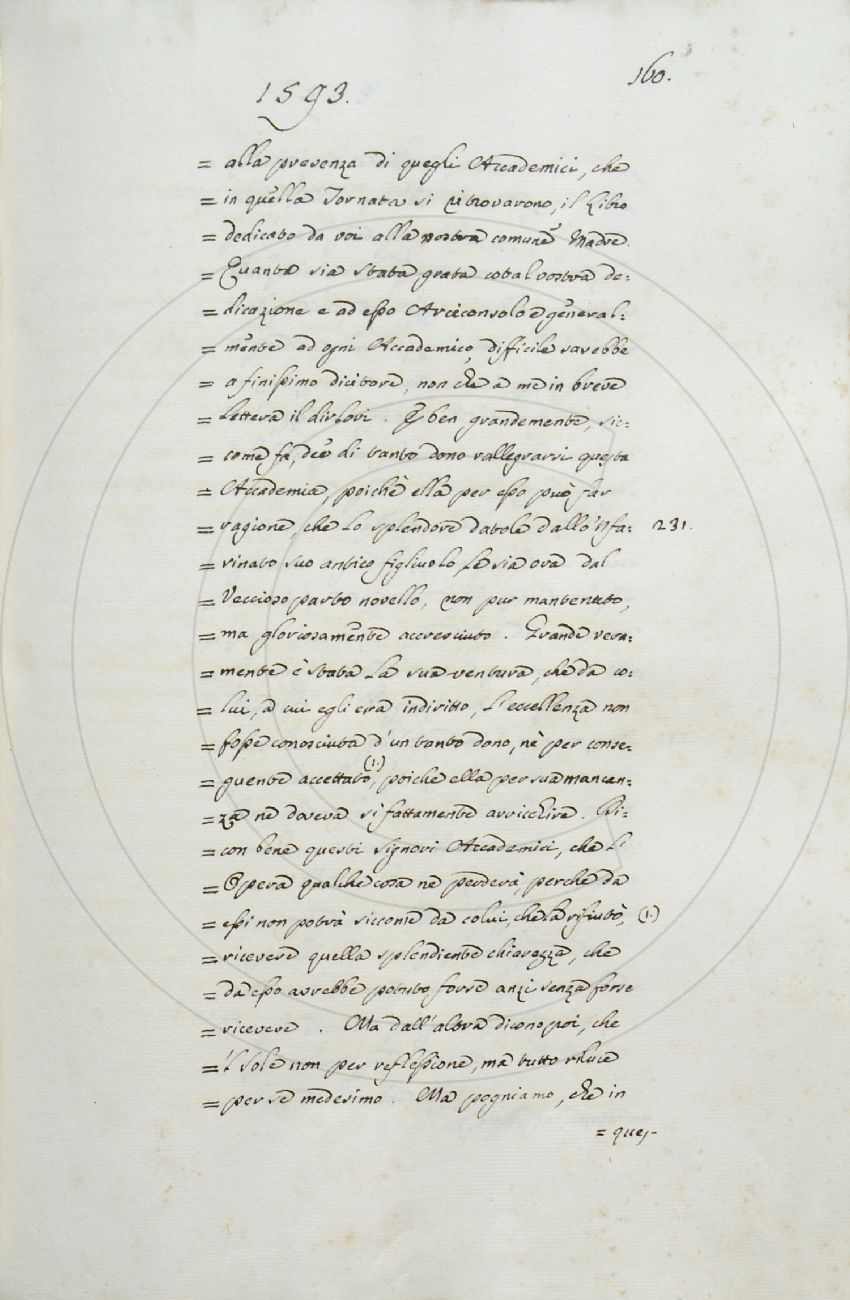 1593.
160.
= alla presenza di quegli Accademici, che
= in quella Tornata si ritrovarono, il Libro
= dedicato da voi alla nostra comune Madre.
= Quanto sia stata grata cotal vostra de=
= dicazione e ad esso Arciconsolo e general=
= mente ad ogni Accademico, difficile sarebbe
= a finissimo dicitore, non che a me in breve
= Lettera il dirlovi. E ben grandemente, sic=
= come fa, dee di tanto dono rallegrarsi questa
= Accademia, poichè ella per esso può far
= ragione, che lo splendore datole dallo 'nfa=
231.
= rinato suo antico figliuolo le sia ora dal
= Veccioso parto novello, non pur mantenuto,
= ma gloriosamente accresciuto. Grande vera=
= mente è stata la sua ventura, che da co=
= lui, a cui egli era indiritto, l'eccellenza non
= fosse conosciuta d'un tanto dono, nè per conse=
= guente accettato, (1.) poichè ella per sua mancan=
= za ne doveva sì fattamente arricchire. Di=
= con bene questi Signori Accademici, che l'
= Opera qualche cosa ne perderà, perchè da
= essi non potrà siccome da colui, che la rifiutò, (1.)
= ricevere quella splendiente chiarezza, che
= da esso avrebbe potuto forse anzi senza forse
= ricevere. Ma dall'altra dicono poi, che
= 'l Sole non per reflessione, ma tutto riluce
= per se medesimo. Ma pogniamo, che in
= ques-